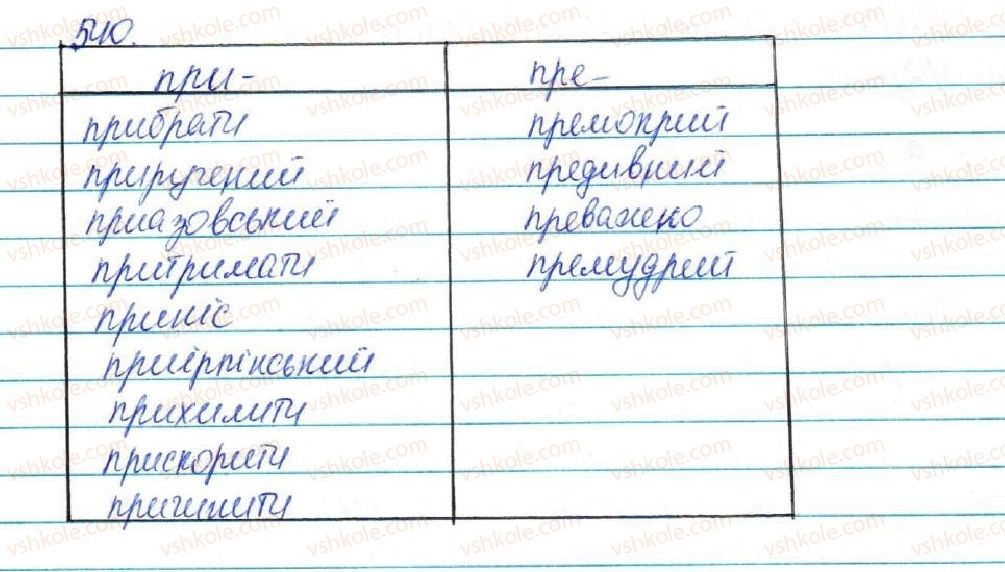 540.
при- пре-
прибрати премокрий
приручений предивний
приазовський преважно
притримати премудрий
приніс
приірпінський
прихилити
прискорити
пришити